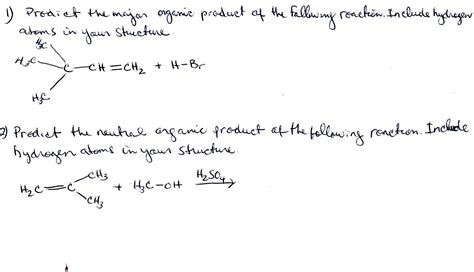 1) Predict the major organic product of the following reaction. Include hydrogen
atoms in your structure.
H₃C
H₃C
C—CH=CH₂ + H-Br
H₃C
2) Predict the neutral organic product of the following reaction. Include
hydrogen atoms in your structure
CH₃
H₂C=C + H₃C-OH H₂SO₄
CH₃